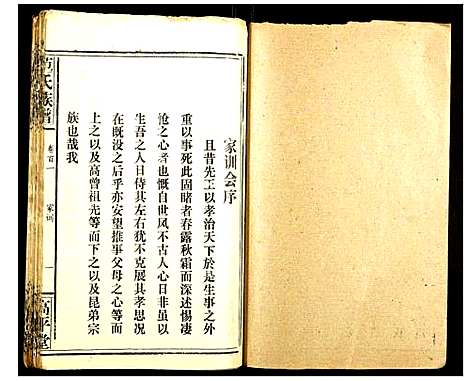 家训会序
且昔先王以孝治天下於是生事之外
重以事死此固睹者春露秋霜而深述惕凄
怆之心者也慨自世风不古人心日非虽以
生吾之人日侍其左右犹不克展其孝思况
在既没之后乎亦安望推事父母之心等而
上之以及高曾祖先等而下之以及昆弟宗
族也哉我
氏族谱
卷首一
家训
一
高平堂